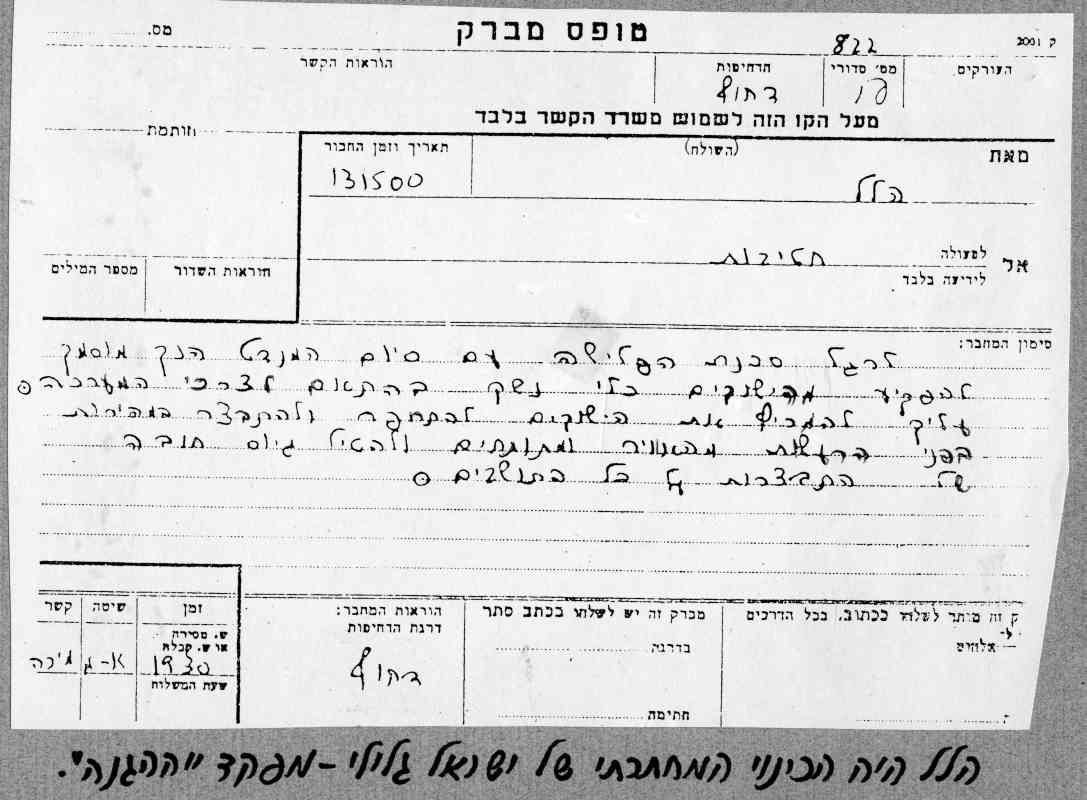 טופס מברק
מס.
ק 2001
822
העורקים
מס׳ סדורי
הדחיפות
הוראות הקשר
דחוף
מעל הקו הזה לשמוש משרד הקשר בלבד
וזותמת
תאריך וזמן החבור
(השולח)
מאת
131500
הלל
אל
לפעולה
חטיבות
לידיעה בלבד
הוראות השדור
מספר המילים
סימון המחבר:
לרגל סכנת הפלישה עם סיום המנדט הנך מוסמך
להפקיע מהישובים כלי נשק בהתאם לצרכי המערכה
עליך להמריץ את הישובים להתחפר ולהתבצר במהירות
בפני הרעשות מהאויר ומתותחים ולהטיל גיוס חובה
של התבצרות על כל התושבים
ק זה מותר לשלוח ככתוב. בכל הדרכים
אלחוט
מברק זה יש לשלוח בכתב סתר
בדרגה
חתימה
הוראות המחבר:
דרגת הדחיפות
דחוף
זמן
שיטה
קשר
ש. מסירה
או ש. קבלה
1930
א-ג
מירה
שעת המשלוח
הלל היה הכינוי המחתרתי של ישראל גלילי - מפקד ״ההגנה״.